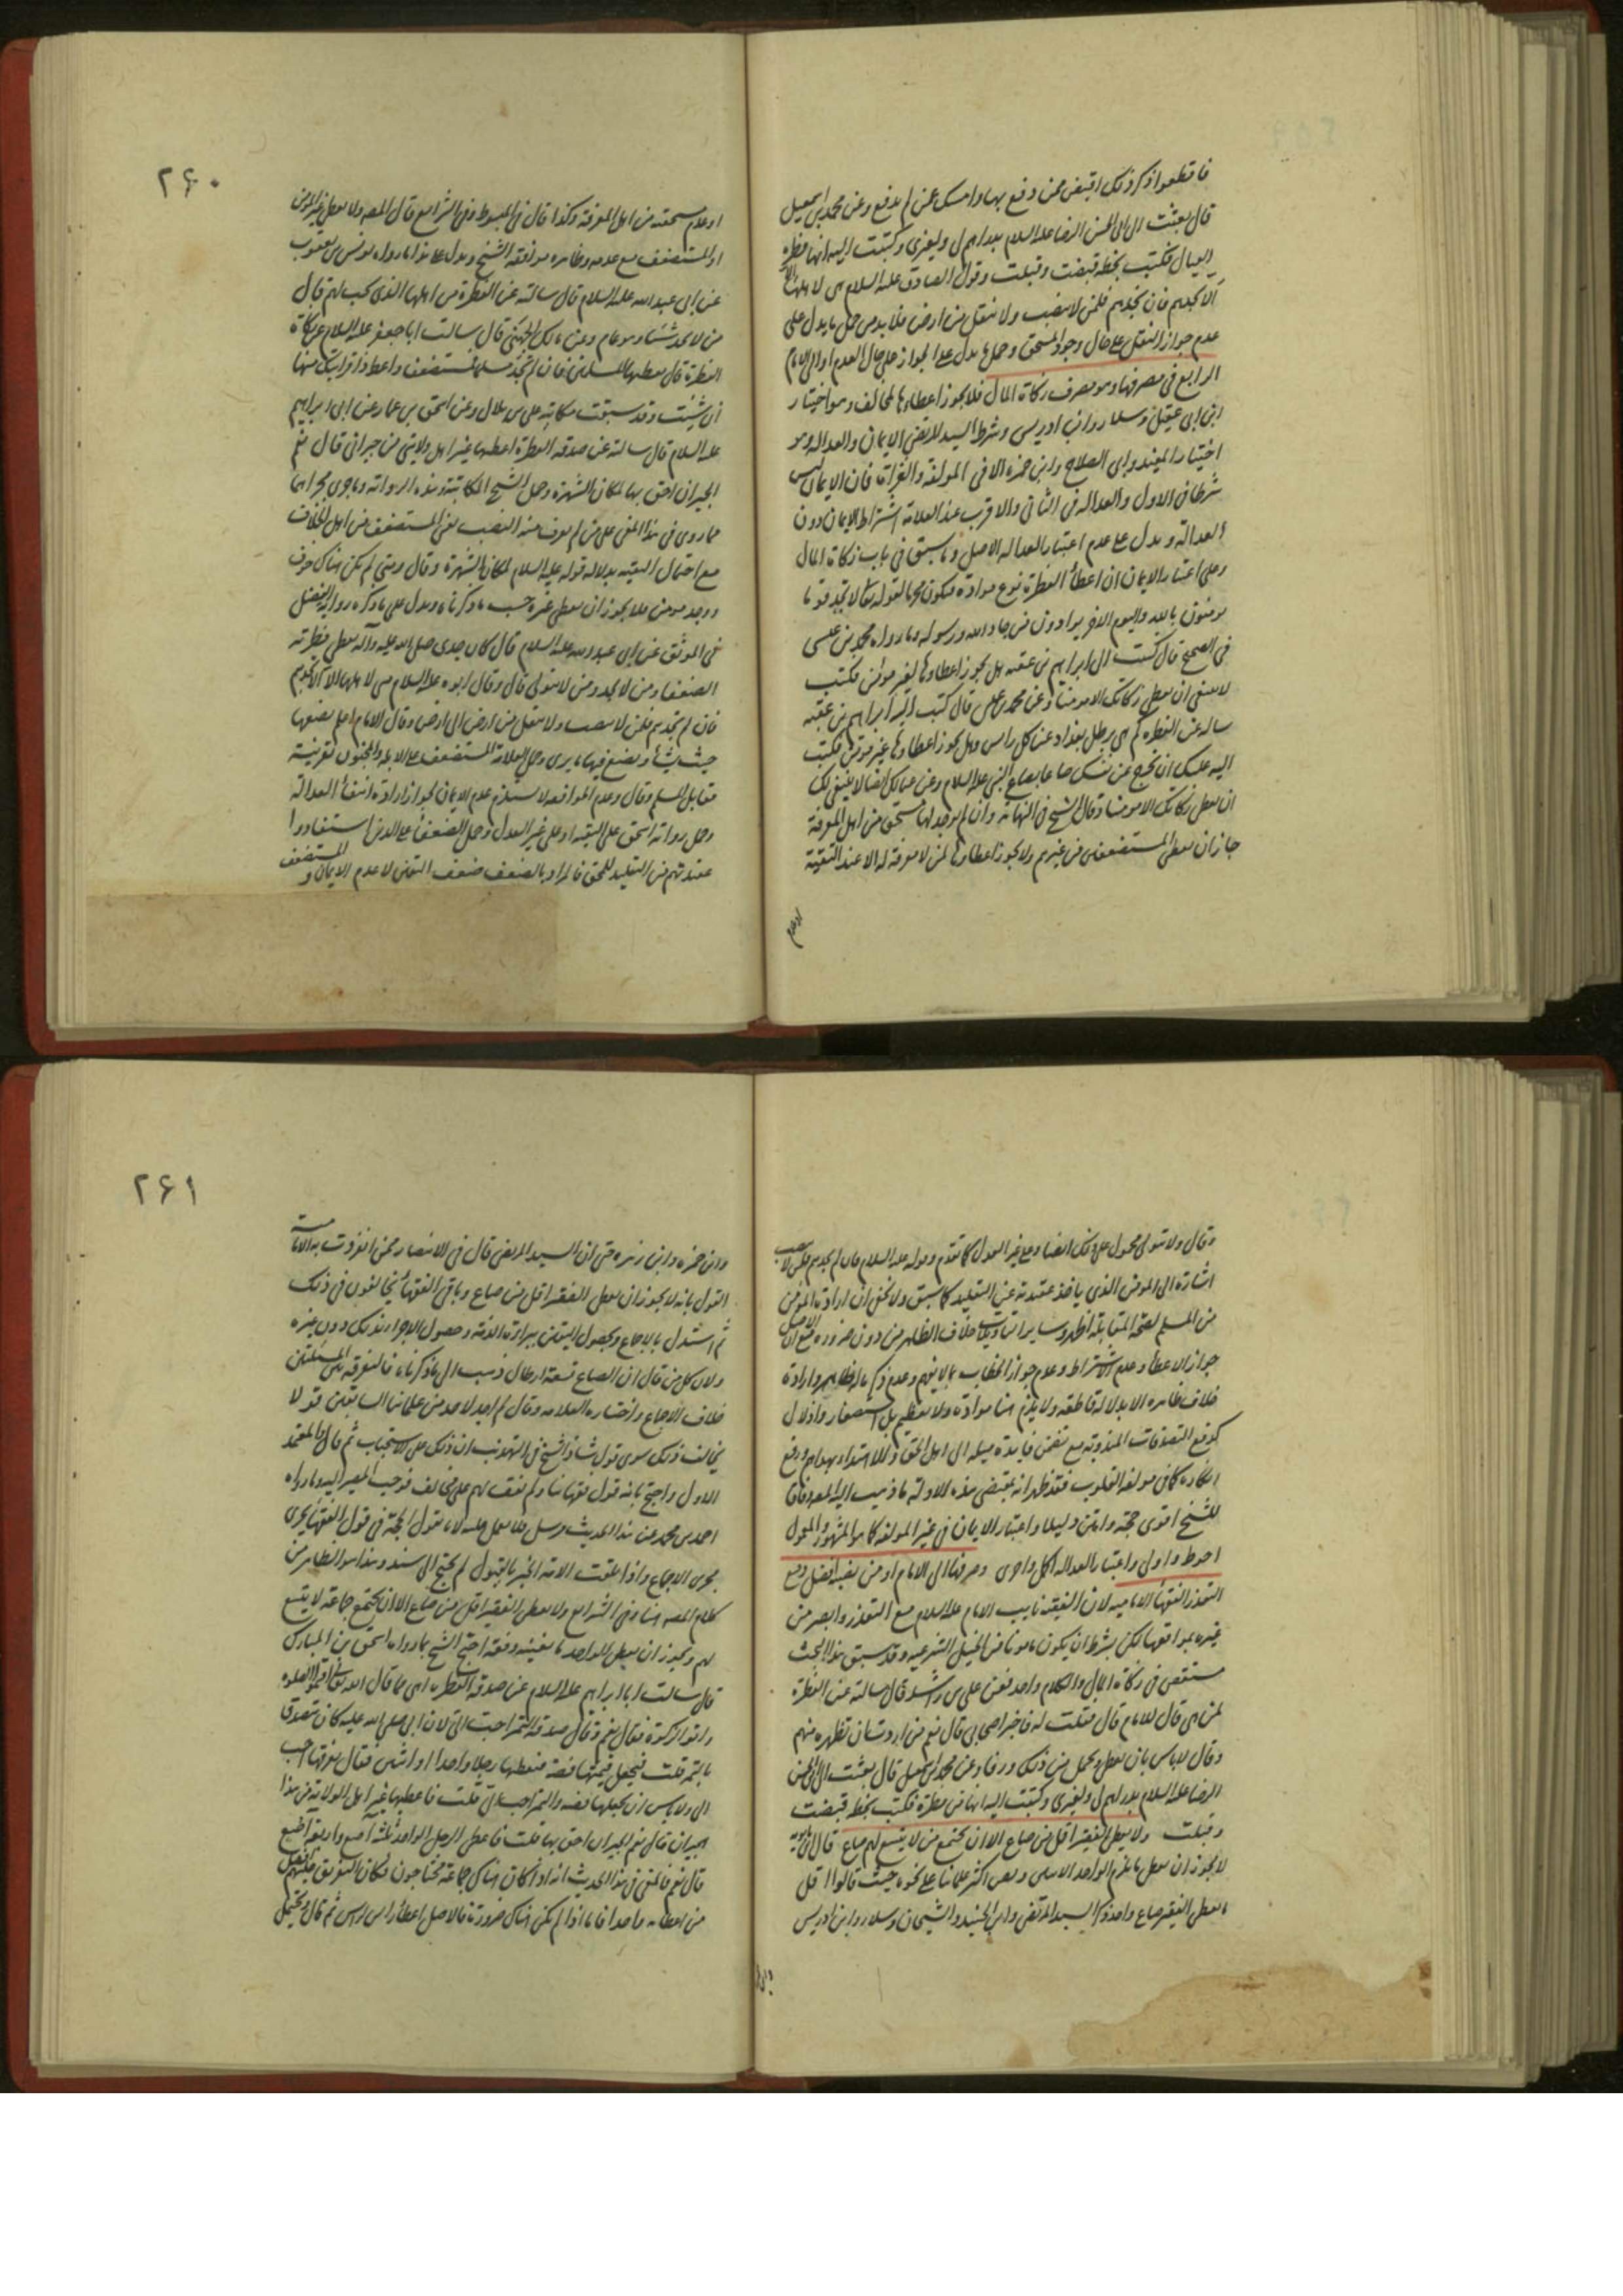 فاقطعوا ذكر ذلك اقبض ممن دفع بها وامسك عمن لم يدفع وعن محمد بن اسمعيل
قال بعثت الى ابى الحسن الرضا عليه السلام بدراهم لى ولغيرى وكتبت اليه انها فطرة
العيال فكتب بخطه قبضت وقبلت وقول الصادق عليه السلام هى لاهلها الا
ان لا تجدهم فان لم تجدهم فلمن لا ينصب ولا تنقل من ارض فلا بد من حمل ما يدل على
عدم جواز النقل على حال وجود المستحق وحمل ما يدل على الجواز على حال العدم او الى الامام
الرابع فى مصرفها وهو مصرف زكاة المال فلا يجوز اعطاءها لمخالف وهو اختيار
ابن ابى عقيل وسلار وابن ادريس وشرط السيد المرتضى الايمان والعدالة وهو
اختيار المفيد وابى الصلاح وابن حمزة الا فى المولفة والغزاة فان الايمان ليس
شرطا فى الاول والعدالة فى الثانى والاقرب عند العلامة اشتراط الايمان دون
العدالة ويدل على عدم اعتبار العدالة الاصل وما سبق فى باب زكاة المال
وعلى اعتبار الايمان ان اعطاء الفطرة نوع موادة فيكون محرما لقوله تعالى لا تجد قوما
يومنون بالله واليوم الاخر يوادون من حاد الله ورسوله وما رواه محمد بن عيسى
فى الصحيح قال كتب اليه ابراهيم بن عقبه هل يجوز اعطاوها لغير مومن فكتب
لا ينبغى ان تعطى زكاتك الا مومنا وعن محمد بن عيسى قال كتب اليه ابراهيم بن عقبه
يساله عن الفطرة كم هى برطل بغداد عن كل راس وهل يجوز اعطاوها غير مومن فكتب
اليه عليك ان تخرج عن نفسك صاعا بصاع النبى عليه السلام وعن عيالك ايضا لا ينبغى لك
ان تعطى زكاتك الا مومنا وقال الشيخ فى النهاية وان لم يوجد لها مستحق من اهل المعرفة
جاز ان تعطى المستضعفين من غيرهم ولا يجوز اعطاوها لمن لا معرفة له الا عند التقية
او عدم
۲۶۰
او عدم مستحقه من اهل المعرفة وكذا قال فى المبسوط وفى الشرايع قال المصر ولا يعطى غير المومن
او المستضعف مع عدمه وظاهره موافقه الشيخ ويدل على هذا ما رواه يونس بن يعقوب
عن ابى عبد الله عليه السلام قال سالته عن الفطرة من اهلها الذى يجب لهم قال
من لا يجد شيئا وهو عام وعن مالك الجهنى قال سالت ابا جعفر عليه السلام عن زكاة
الفطرة قال تعطيها المسلمين فان لم تجد مسلما فمستضعف واعط ذا قرابتك منها
ان شئت وقد سبقت مكاتبة على بن بلال وعن اسحق بن عمار عن ابى ابراهيم
عليه السلام قال سالته عن صدقه الفطرة اعطيها غير اهل ولايتى من جيرانى قال نعم
الجيران احق بها لمكان الشهرة وحمل الشيخ المكاتبة وهذه الرواية وما جرى مجراهما
مما روى فى هذا المعنى على من لم يعرف منه النصب يعنى المستضعف من اهل الخلاف
مع احتمال التقيه بدلاله قوله عليه السلام لمكان الشهرة وقال ومتى لم يكن هناك خوف
ووجد مومن فلا يجوز ان يعطى غيره حسب ما ذكرناه ويدل على ما ذكره رواية الفضيل
فى الموثق عن ابى عبد الله عليه السلام قال كان جدى صلى الله عليه وآله يعطى فطرته
الضعفا ومن لا يجد ومن لا يتولى قال وقال ابوه عليه السلام هى لاهلها الا ان لا تجدهم
فان لم تجدهم فلمن لا ينصب ولا تنقل من ارض الى ارض وقال الامام اعلم يضعها
حيث يشاء ويصنع فيها ما يرى وحمل العلامة المستضعف على الابله والمجنون بقرينية
مقابل المسلم وقال وعدم الموافقه لا يستلزم عدم الايمان لجواز ارادة انتفاء العدالة
وحمل رواية اسحق على التقيه او على غير العدل وحمل الضعفا على الذين استفادوا
عقيدتهم من التقليد للمحق فالمراد بالضعف ضعف اليقين لا عدم الايمان والمستضعف
وقال ولا يتولى محمول على ذلك ايضا وعلى غير العدل كما تقدم وقوله عليه السلام فان لم تجدهم فلمن لا ينصب
اشارة الى المومن الذى ياخذ عقيدته عن التقليد كما سبق ولا يخفى ان ارادة المومن
من المسلم لصحة المقابلة اظهر وساير التاويلات خلاف الظاهر من دون ضرورة مع ان الاصل
جواز الاعطاء وعدم الاشتراط وعدم جواز الخطاب بما لا يفهم وعدم ذكر ما له ظاهر وارادة
خلاف ظاهره الا بدلالة قاطعه ولا يلزم هنا موادة ولا تعظيم بل استصغار واذلال
كدفع الصدقات المندوبة مع تضمن فايدة ميله الى اهل الحق
انكاره كما فى مولفة القلوب فقد ظهر انه بمقتضى هذه الادلة ما ذهب اليه
للشيخ اقوى حجة وامتن دليلا واعتبار الايمان فى غير المولفه كما هو المشهور والمعمول
احوط واولى واعتبار العدالة اكمل واحرى وصرفها الى الامام او من نصبه افضل ومع
التعذر الفقهاء الاماميه لان الفقيه نايب الامام عليه السلام مع التعذر وابصر من
غيره بمواقعها لكن بشرط ان يكون مامونا من الحيل الشرعيه وقد سبق هذا البحث
مستقصى فى زكاة المال والكلام واحد فعن على بن راشد قال سالته عن الفطرة
لمن هى قال للامام قال قلت له فاخبر اصحابى قال نعم من اردت ان تطهره منهم
وقال لا باس بان تعطى وتحمل ثمن ذلك ورقا وعن محمد بن اسمعيل قال بعثت الى ابى الحسن
الرضا عليه السلام بدراهم لى ولغيرى وكتبت اليه انها من فطرة فكتب بخطه قبضت
وقبلت ولا يعطى الفقير اقل من صاع الا ان يجتمع من لا يتسع لهم صاع قال ابن بابويه
لا يجوز ان يعطى ما يلزم الواحد الاثنين ونص اكثر علمائنا على نحوه حيث قالوا اقل
ما يعطى الفقير صاع واحد ذكره السيد المرتضى وابن الجنيد والشيخان وسلار وابن ادريس
وابن
۲۶۱
وابن حمزه وابن زهره حتى ان السيد المرتضى قال فى الانتصار ومما انفردت به الامامية
القول بانه لا يجوز ان يعطى الفقير اقل من صاع وباقى الفقهاء يخالفون فى ذلك
ثم استدل بالاجماع وبحصول اليقين ببراءة الذمة وحصول الاجزاء بذلك دون غيره
ولان كل من قال ان الصاع تسعة ارطال ذهب الى ما ذكرناه فالتفرقه بين المسئلتين
خلاف الاجماع واختاره العلامه وقال لم اجد لاحد من علمائنا السابقين قولا
يخالف ذلك سوى قول شاذ للشيخ فى التهذيب ان ذلك على الاستحباب ثم قال والمعتمد
الاول واحتج بانه قول فقهائنا ولم نقف لهم على مخالف فوجب المصير اليه وما رواه
احمد بن محمد عن هذا الحديث مرسل فلا يعمل عليه لانا نقول الحجة فى قول الفقهاء يجرى
مجرى الاجماع واذا تلقت الامة الخبر بالقبول لم يحتج الى سند وهذا هو الظاهر من
كلام المصر هنا وفى الشرايع ولا يعطى الفقير اقل من صاع الا ان يجتمع جماعة لا يتسع
لهم ويجوز ان يعطى الواحد ما يغنيه دفعة احتج الشيخ بما رواه اسحق بن المبارك
قال سالت ابا ابراهيم عليه السلام عن صدقة الفطرة اهى مما قال الله تعالى اقيموا الصلوة
واتوا الزكوة فقال نعم وقال صدقة التمر احب الى لان ابى صلى الله عليه كان يتصدق
بالتمر قلت فيجعل قيمتها فضة فيعطيها رجلا واحدا او اثنين فقال تفرقها احب
الى ولا باس ان يجعلها فضة والتمر احب الى قلت فاعطيها غير اهل الولاية من هذا
الجيران قال نعم الجيران احق بها قلت فاعطى الرجل الواحد ثلثة آصع واربعة اصع
قال نعم فالمعنى فى هذا الحديث انه اذا كان هناك جماعة محتاجون فكان التفريق عليهم افضل
من اعطائه واحدا فاما اذا لم تكن هناك ضرورة فالاصل اعطاء راس لراس ثم قال ويحتمل